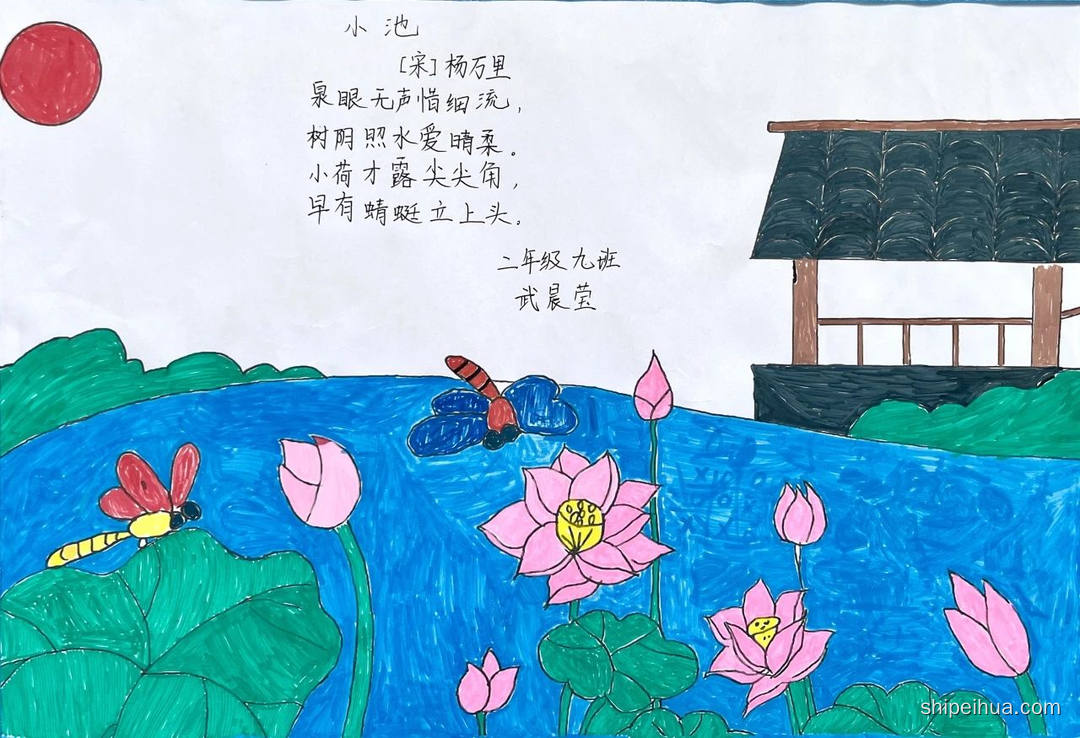 小池
[宋]杨万里
泉眼无声惜细流，
树阴照水爱晴柔。
小荷才露尖尖角，
早有蜻蜓立上头。
二年级九班
武晨莹
shipeihua.com